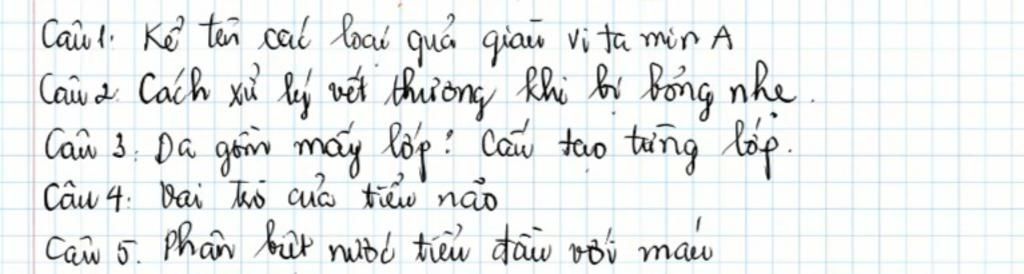 Câu 1. Kể tên các loại quả giàu vi ta min A
Câu 2. Cách xử lý vết thương khi bị bỏng nhẹ.
Câu 3. Da gồm mấy lớp? Cấu tạo từng lớp.
Câu 4: Vai trò của tiểu não
Câu 5. Phân biệt nước tiểu đầu với máu